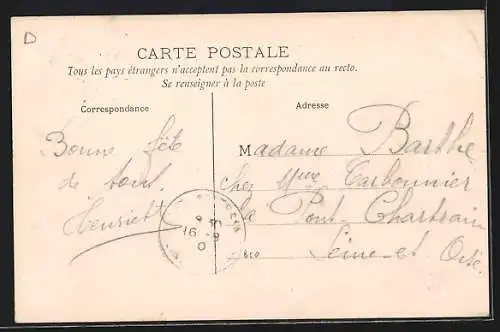 D
CARTE POSTALE
Tous les pays étrangers n'acceptent pas la correspondance au recto.
Se renseigner à la poste
Correspondance
Adresse
Bonne fête
de tout
Henriett
Madame Barthe
chez Mme Carbonnier
Le Pont Chartrain
Seine et Oise
16 9
0